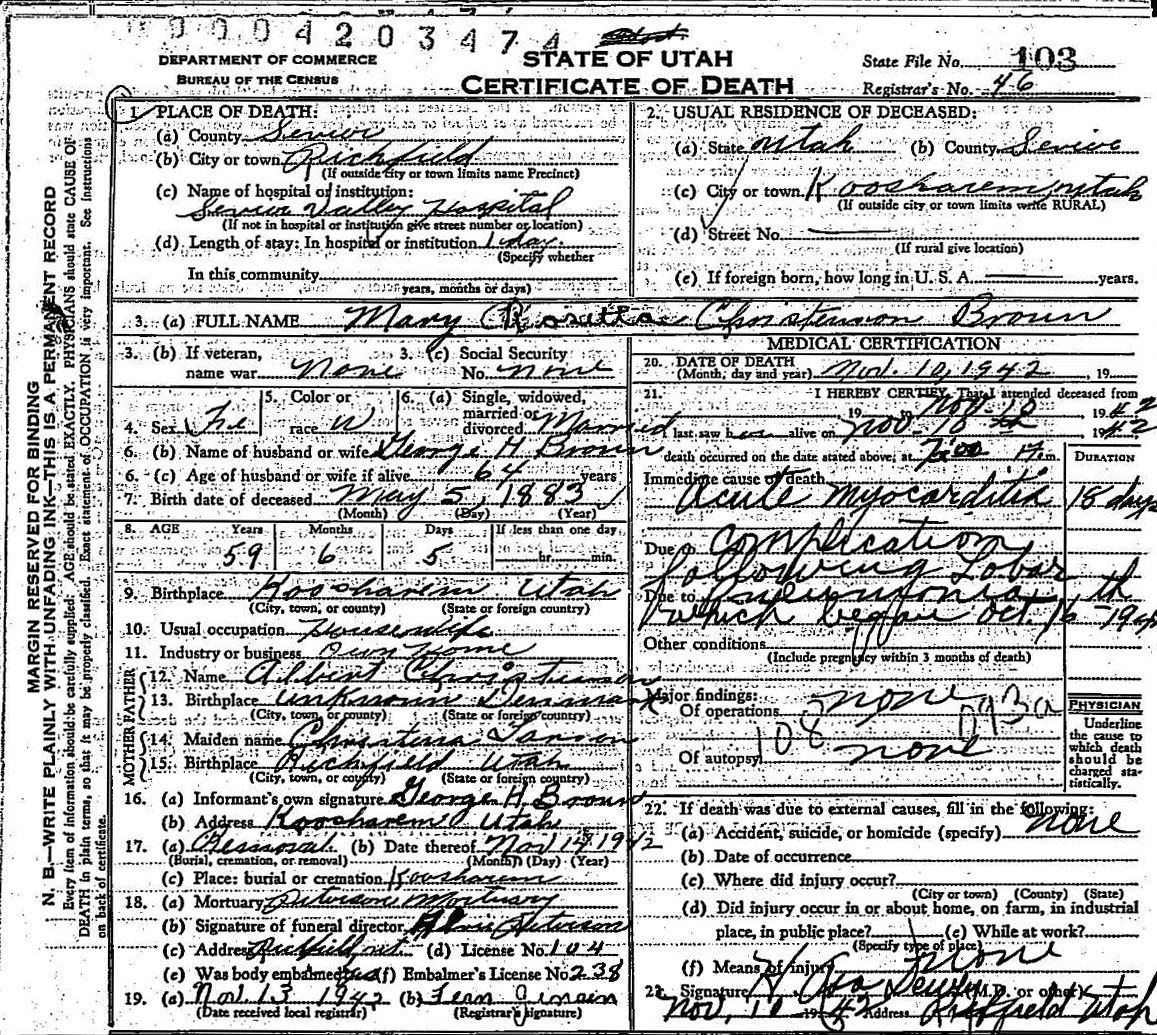 0004203474
DEPARTMENT OF COMMERCE
BUREAU OF THE CENSUS
STATE OF UTAH
CERTIFICATE OF DEATH
State File No. 103
Registrar's No. 46
MARGIN RESERVED FOR BINDING
N. B.—WRITE PLAINLY WITH UNFADING INK—THIS IS A PERMANENT RECORD
Every item of information should be carefully supplied. AGE should be stated EXACTLY. PHYSICIANS should state CAUSE OF
DEATH in plain terms, so that it may be properly classified. Exact statement of OCCUPATION is very important. See instructions
on back of certificate.
1. PLACE OF DEATH:
(a) County Sevier
(b) City or town Richfield
(If outside city or town limits name Precinct)
(c) Name of hospital or institution:
Sevier Valley Hospital
(If not in hospital or institution give street number or location)
(d) Length of stay: In hospital or institution 1 day
(Specify whether
In this community
years, months or days)
2. USUAL RESIDENCE OF DECEASED:
(a) State Utah (b) County Sevier
(c) City or town Koosharem, Utah
(If outside city or town limits write RURAL)
(d) Street No.
(If rural give location)
(e) If foreign born, how long in U. S. A. years.
3. (a) FULL NAME Mary Rosetta Christenson Brown
3. (b) If veteran, name war None
3. (c) Social Security No. none
4. Sex Fe
5. Color or race W
6. (a) Single, widowed, married or divorced Married
6. (b) Name of husband or wife George H Brown
6. (c) Age of husband or wife if alive 64 years
7. Birth date of deceased May 5, 1883
(Month) (Day) (Year)
8. AGE Years Months Days If less than one day
59 6 5 hr. min.
9. Birthplace Koosharem Utah
(City, town, or county) (State or foreign country)
10. Usual occupation Housewife
11. Industry or business Own Home
FATHER
12. Name Albert Christenson
13. Birthplace unknown Denmark
(City, town, or county) (State or foreign country)
MOTHER
14. Maiden name Christena Larson
15. Birthplace Richfield Utah
(City, town, or county) (State or foreign country)
16. (a) Informant's own signature George H. Brown
(b) Address Koosharem Utah
17. (a) Removal (b) Date thereof Nov 14 1942
(Burial, cremation, or removal) (Month) (Day) (Year)
(c) Place: burial or cremation Koosharem
18. (a) Mortuary Peterson Mortuary
(b) Signature of funeral director Peterson
(c) Address Richfield, Ut. (d) License No. 104
(e) Was body embalmed yes (f) Embalmer's License No 238
19. (a) Nov. 13 1942 (b)
(Date received local registrar) (Registrar's signature)
MEDICAL CERTIFICATION
20. DATE OF DEATH
(Month, day and year) Nov. 10, 1942, 19
21. I HEREBY CERTIFY, That I attended deceased from
19 to Nov. 10 1942
I last saw h alive on Nov. 10 1942
death occurred on the date stated above; at 7:00 m.
DURATION
Immediate cause of death
Acute myocarditis 18 days
Due to Complication
following Lobar
Due to Pneumonia
which began Oct. 16th
Other conditions
(Include pregnancy within 3 months of death)
Major findings:
Of operations none
108 093a
Of autopsy none
PHYSICIAN
Underline
the cause to
which death
should be
charged sta-
tistically.
22. If death was due to external causes, fill in the following:
(a) Accident, suicide, or homicide (specify) none
(b) Date of occurrence
(c) Where did injury occur?
(City or town) (County) (State)
(d) Did injury occur in or about home, on farm, in industrial
place, in public place? (e) While at work?
(Specify type of place)
(f) Means of injury none
23. Signature (M.D. or other)
Nov. 10 1942 Address Richfield Utah